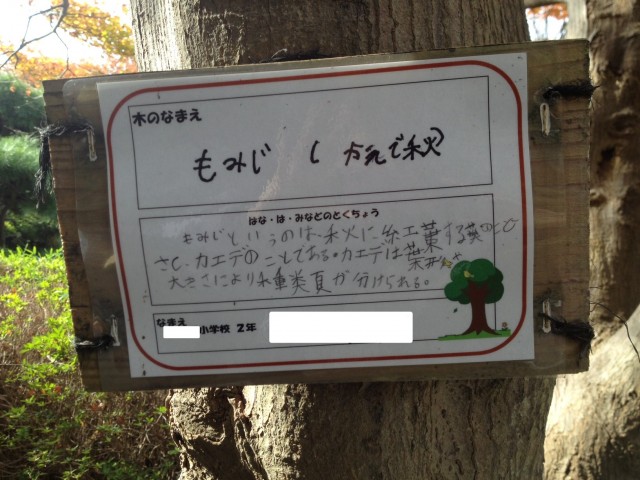 木のなまえ
もみじ
はな・は・みなどのとくちょう
もみじというのは、秋に紅葉する葉のことを
さし、カエデのことである。カエデは葉形や
大きさにより種類が分けられる。
なまえ
小学校 2年